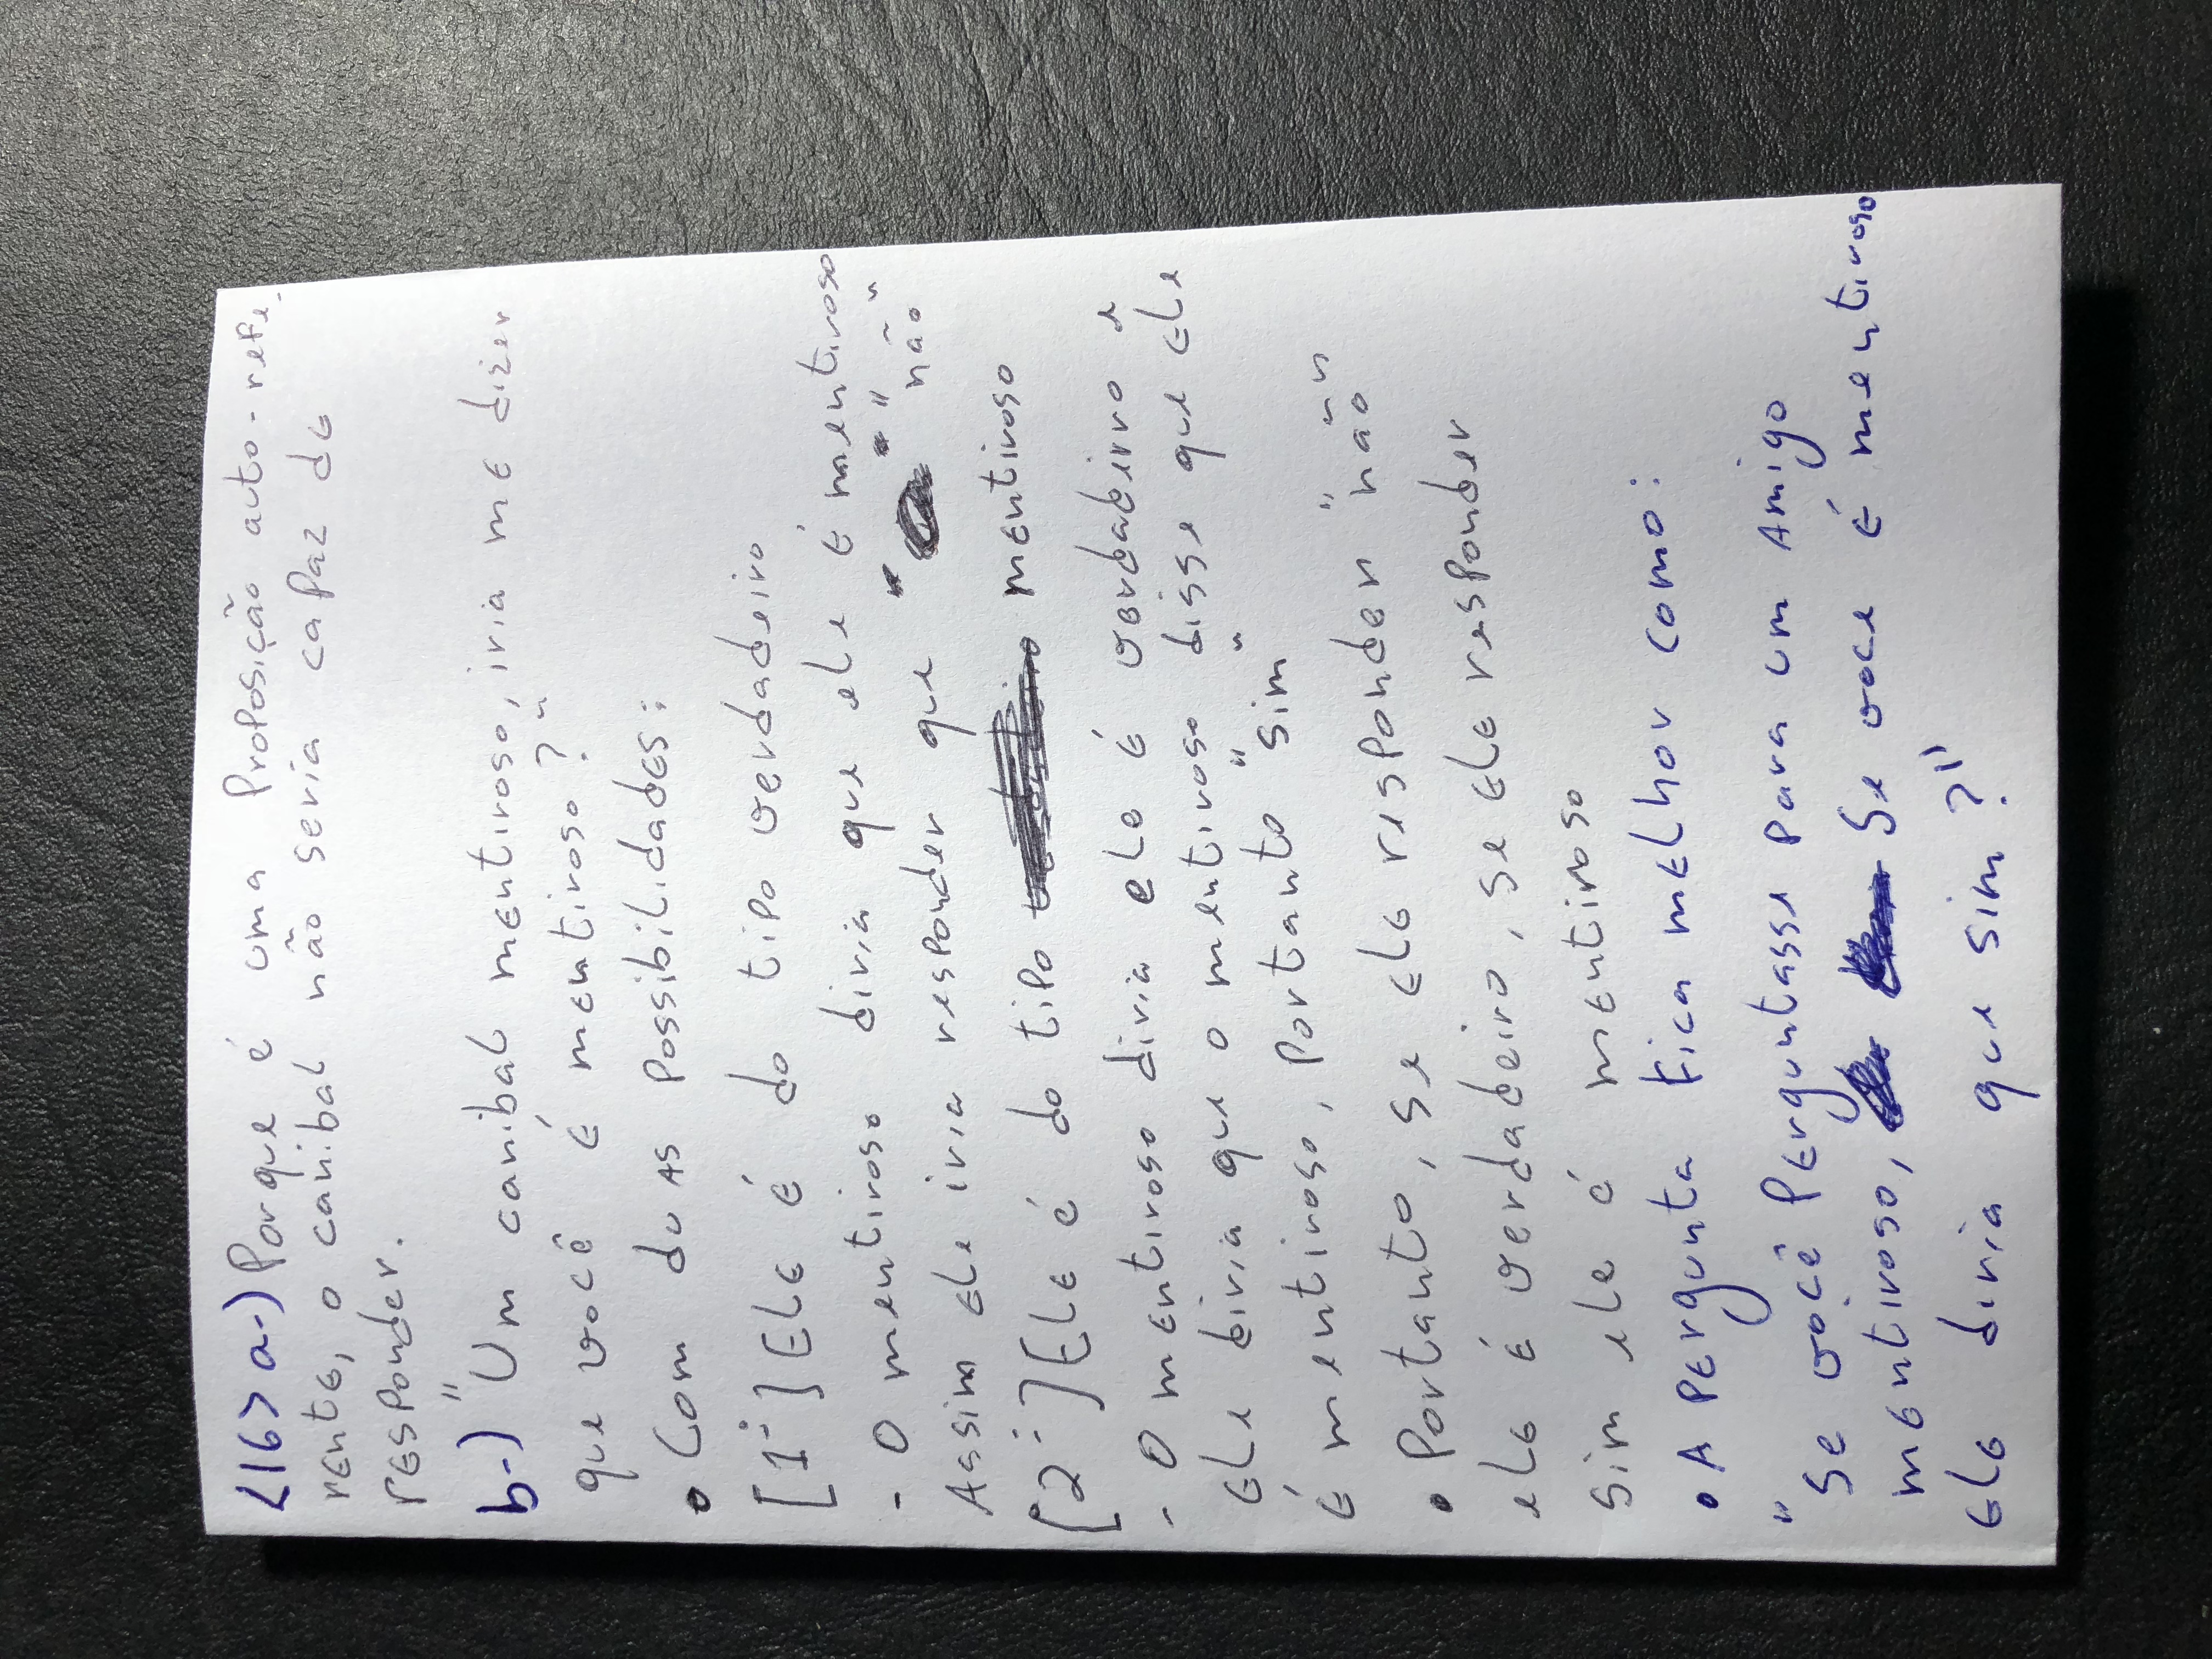 <16> a-) Porque é uma Proposição auto-refe-
rente, o canibal não seria capaz de
responder.
b-) "Um canibal mentiroso, iria me dizer
que você é mentiroso?"
• Com duas possibilidades:
[1º] Ele é do tipo verdadeiro
- O mentiroso diria que ele é mentiroso
Assim ele iria responder que "não"
[2º] Ele é do tipo mentiroso
- O mentiroso diria ele é verdadeirro e
ele diria que o mentiroso disse que ele
é mentiroso, portanto "sim"
• Portanto, se ele responder "não"
ele é verdadeiro, se ele responder
sim ele é mentiroso
• A pergunta fica melhor como:
"Se você perguntasse para um amigo
mentiroso, se voce é mentiroso
ele diria que sim?"